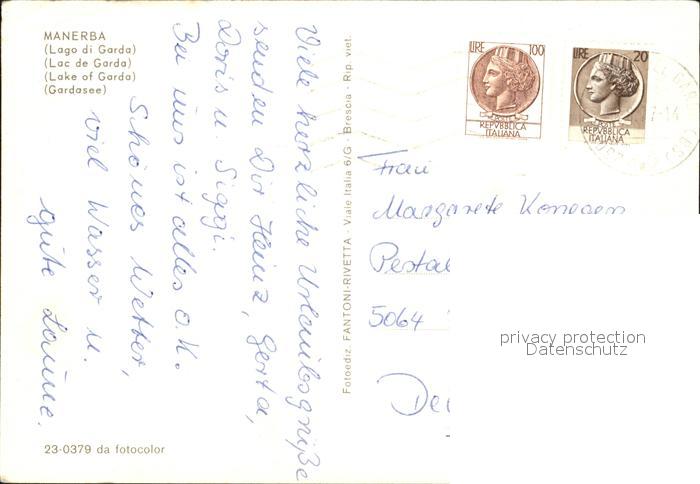 MANERBA
(Lago di Garda)
(Lac de Garda)
(Lake of Garda)
(Gardasee)
Viele herzliche Urlaubsgrüße
senden Dir Heinz, Gerta,
Doris u. Siggi.
Bei uns ist alles o.K.
Schönes Wetter,
viel Wasser u.
gute Laune.
23-0379 da fotocolor
Fotoediz. FANTONI-RIVETTA - Viale Italia 6/G - Brescia - Rip. viet.
LIRE 100
POSTE
REPVBBLICA
ITALIANA
LIRE 20
POSTE
REPVBBLICA
ITALIANA
Frau
Margarete
Pestal
5064
De
privacy protection
Datenschutz